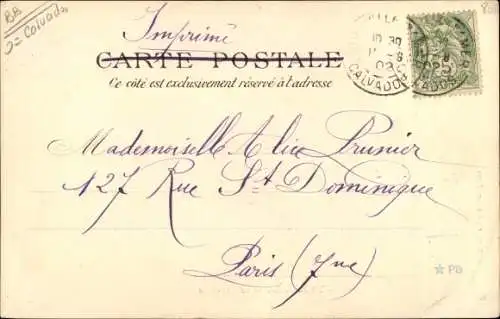 BB
Imprimé
CARTE POSTALE
Ce côté est exclusivement réservé à l'adresse
10 30
03
CALVADOS
5
Mademoiselle Alice Prunier
127 Rue St Dominique
Paris (7me)
*PB